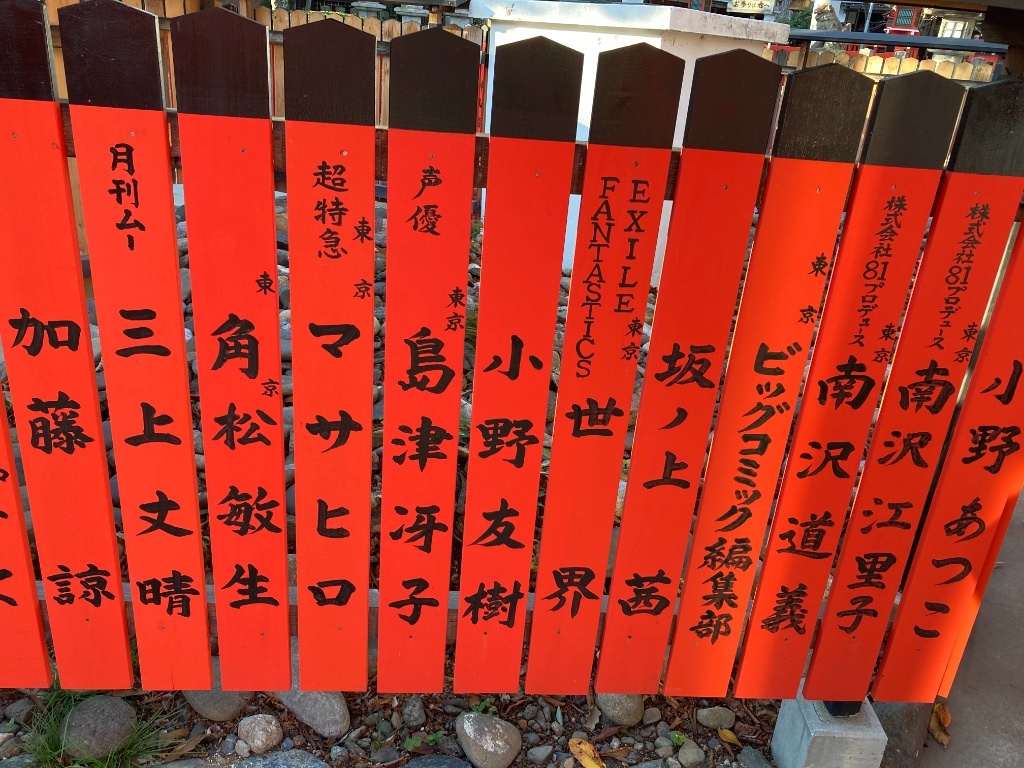 小野あつこ
株式会社81プロデュース
東京
南沢江里子
株式会社81プロデュース
東京
南沢道義
東京
ビッグコミック編集部
坂ノ上茜
EXILE
FANTASTICS
東京
世界
小野友樹
声優
東京
島津冴子
超特急
東京
マサヒロ
東京
角松敏生
月刊ムー
三上丈晴
加藤諒